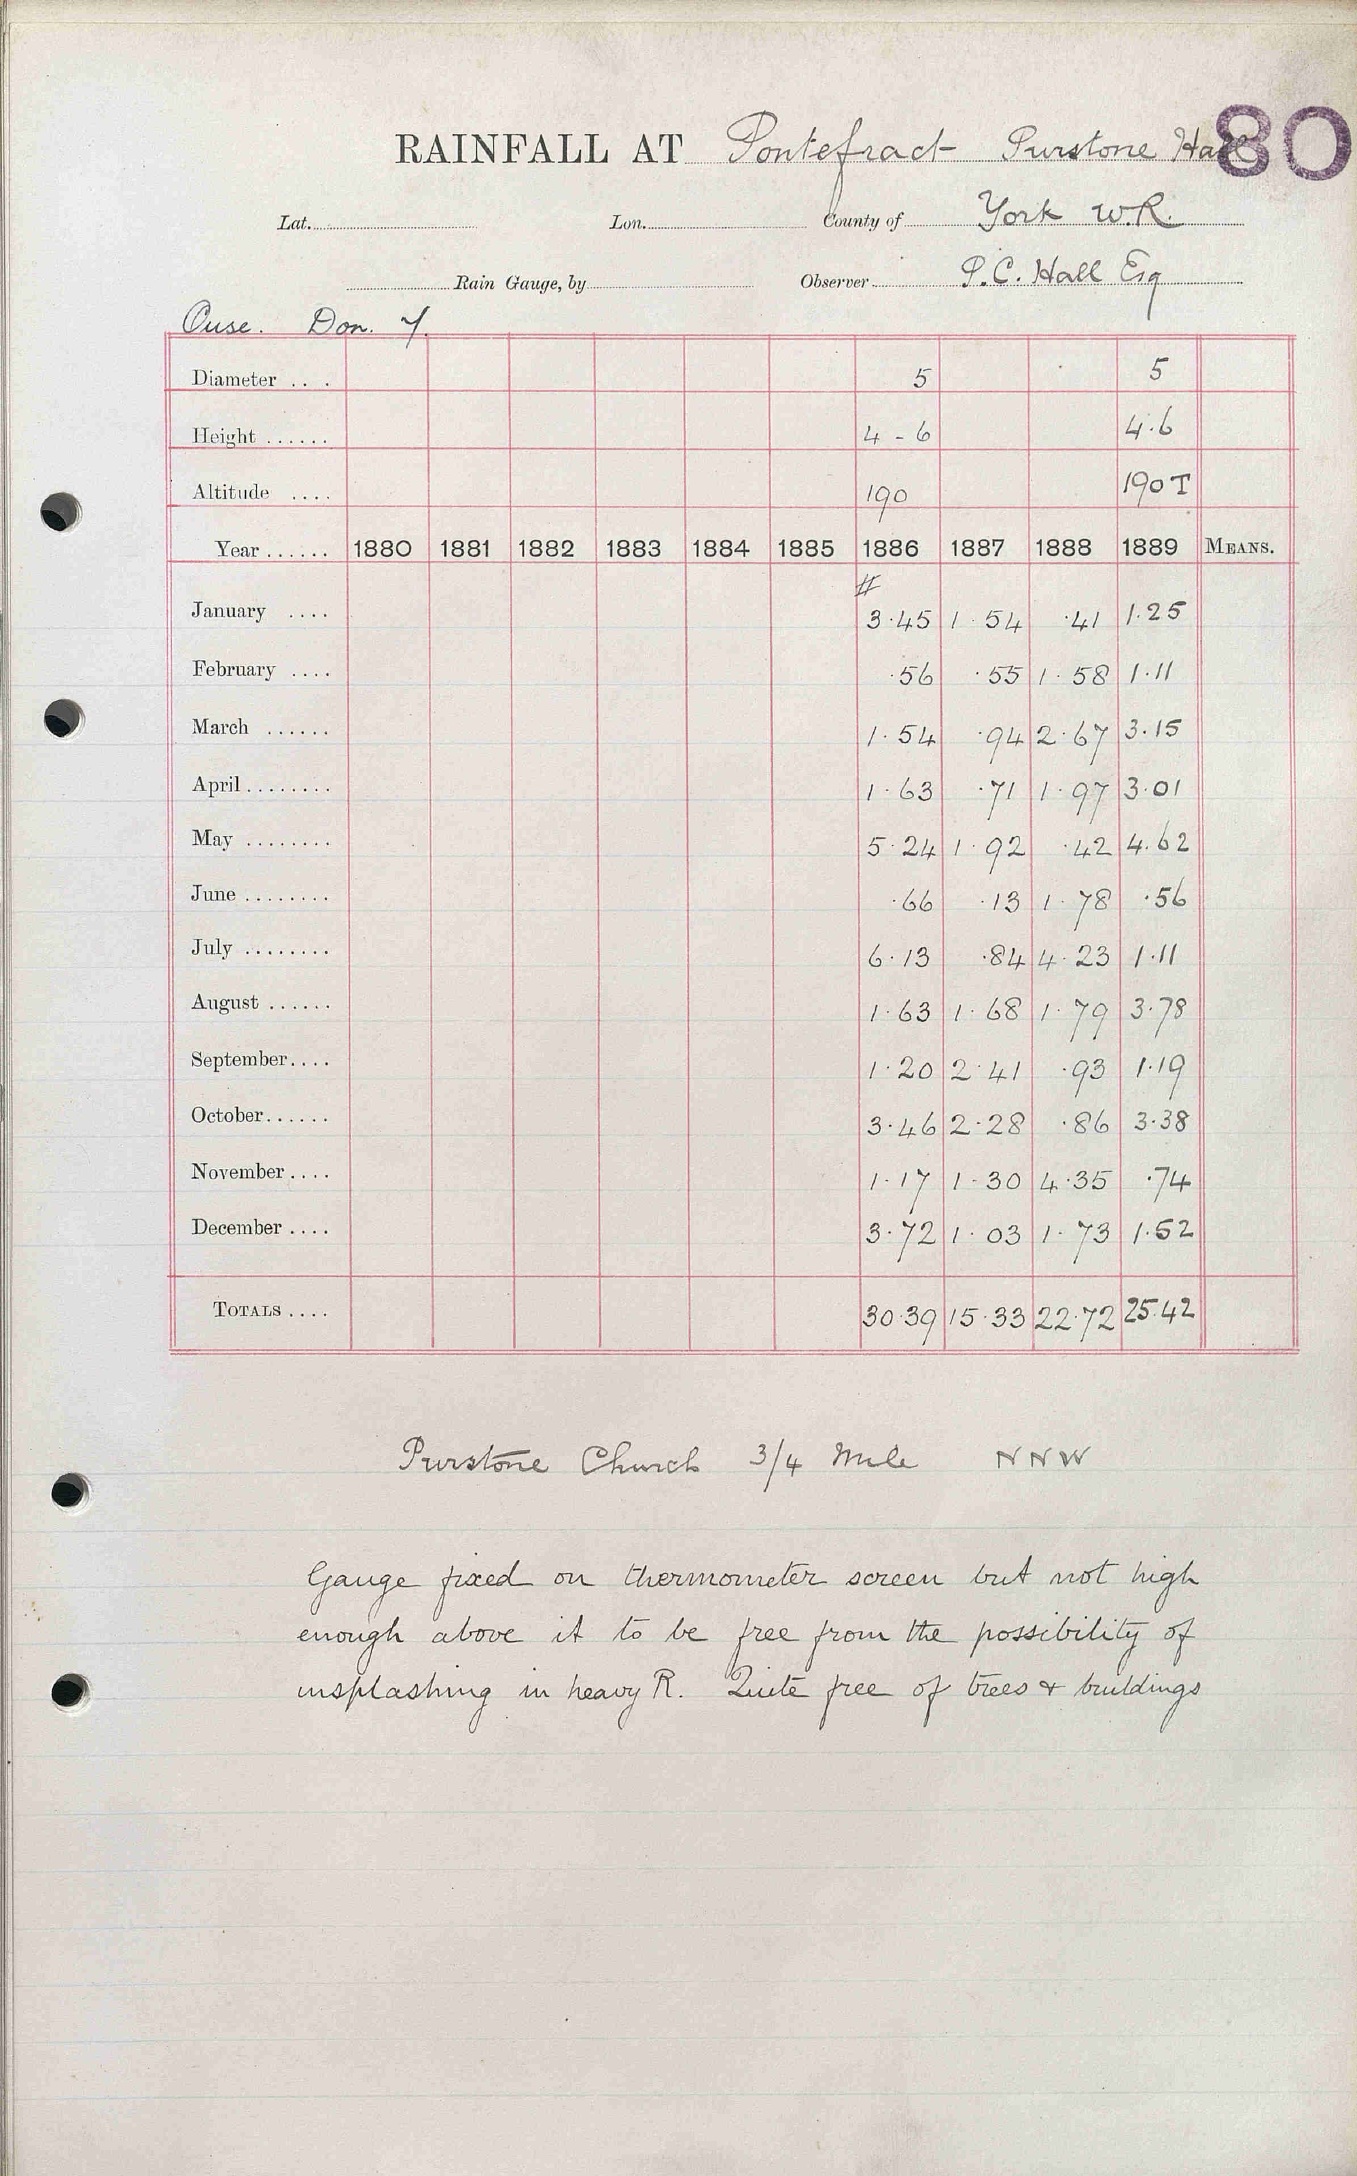 RAINFALL AT Pontefract Purstone Hall 80
Lat. Lon. County of York W.R.
Rain Gauge, by Observer P.C. Hall Esq
Ouse. Don. 7.
Diameter . . . 5 5
Height ...... 4 - 6 4.6
Altitude .... 190 190 T
Year ...... 1880 1881 1882 1883 1884 1885 1886 1887 1888 1889 MEANS.
#
January .... 3.45 1.54 .41 1.25
February .... .56 .55 1.58 1.11
March ...... 1.54 .94 2.67 3.15
April ........ 1.63 .71 1.97 3.01
May ........ 5.24 1.92 .42 4.62
June ........ .66 .13 1.78 .56
July ........ 6.13 .84 4.23 1.11
August ...... 1.63 1.68 1.79 3.78
September .... 1.20 2.41 .93 1.19
October ...... 3.46 2.28 .86 3.38
November .... 1.17 1.30 4.35 .74
December .... 3.72 1.03 1.73 1.52
TOTALS .... 30.39 15.33 22.72 25.42
Purstone Church 3/4 Mile NNW
Gauge fixed on thermometer screen but not high
enough above it to be free from the possibility of
insplashing in heavy R. Quite free of trees & buildings